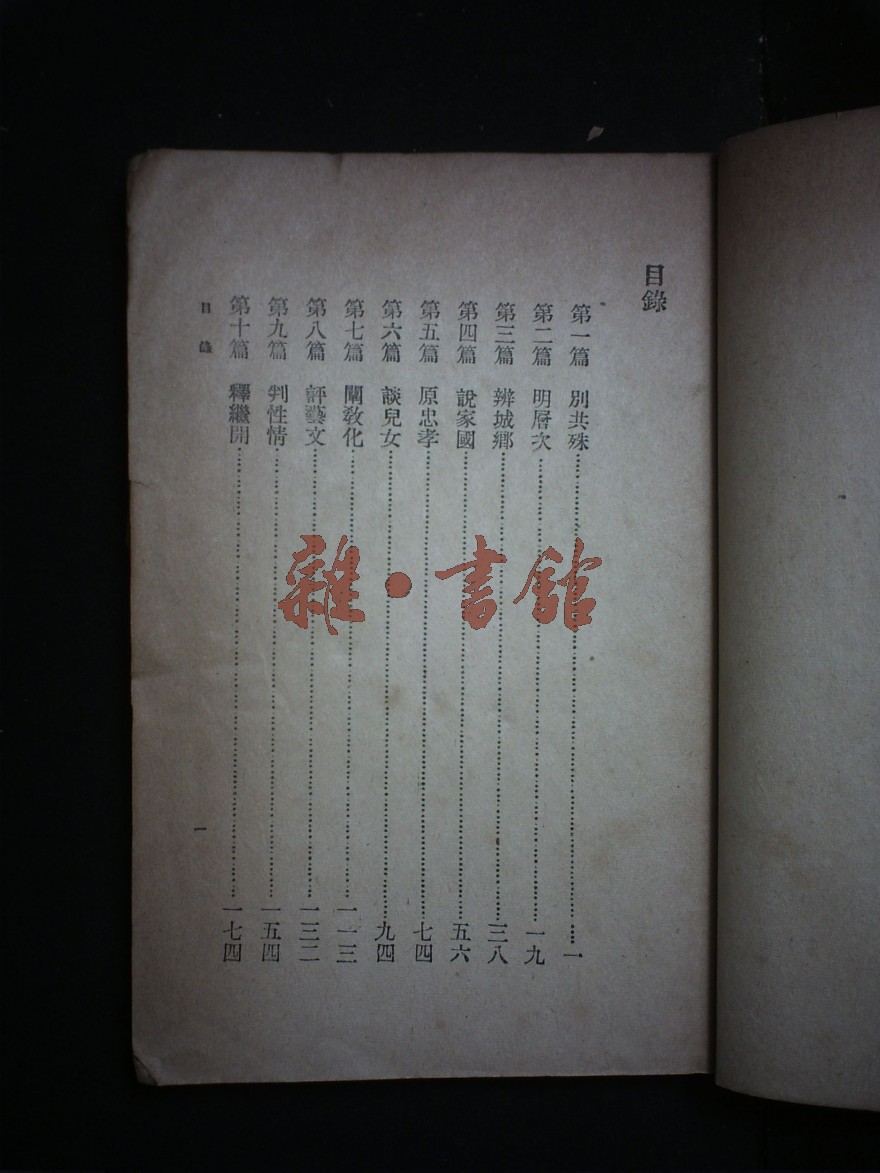 目錄
第一篇 別共殊……一
第二篇 明層次……一九
第三篇 辨城鄉……三八
第四篇 說家國……五六
第五篇 原忠孝……七四
第六篇 談兒女……九四
第七篇 闡敎化……一一三
第八篇 評藝文……一三二
第九篇 判性情……一五四
第十篇 釋繼開……一七四
目錄 一
雜·書館